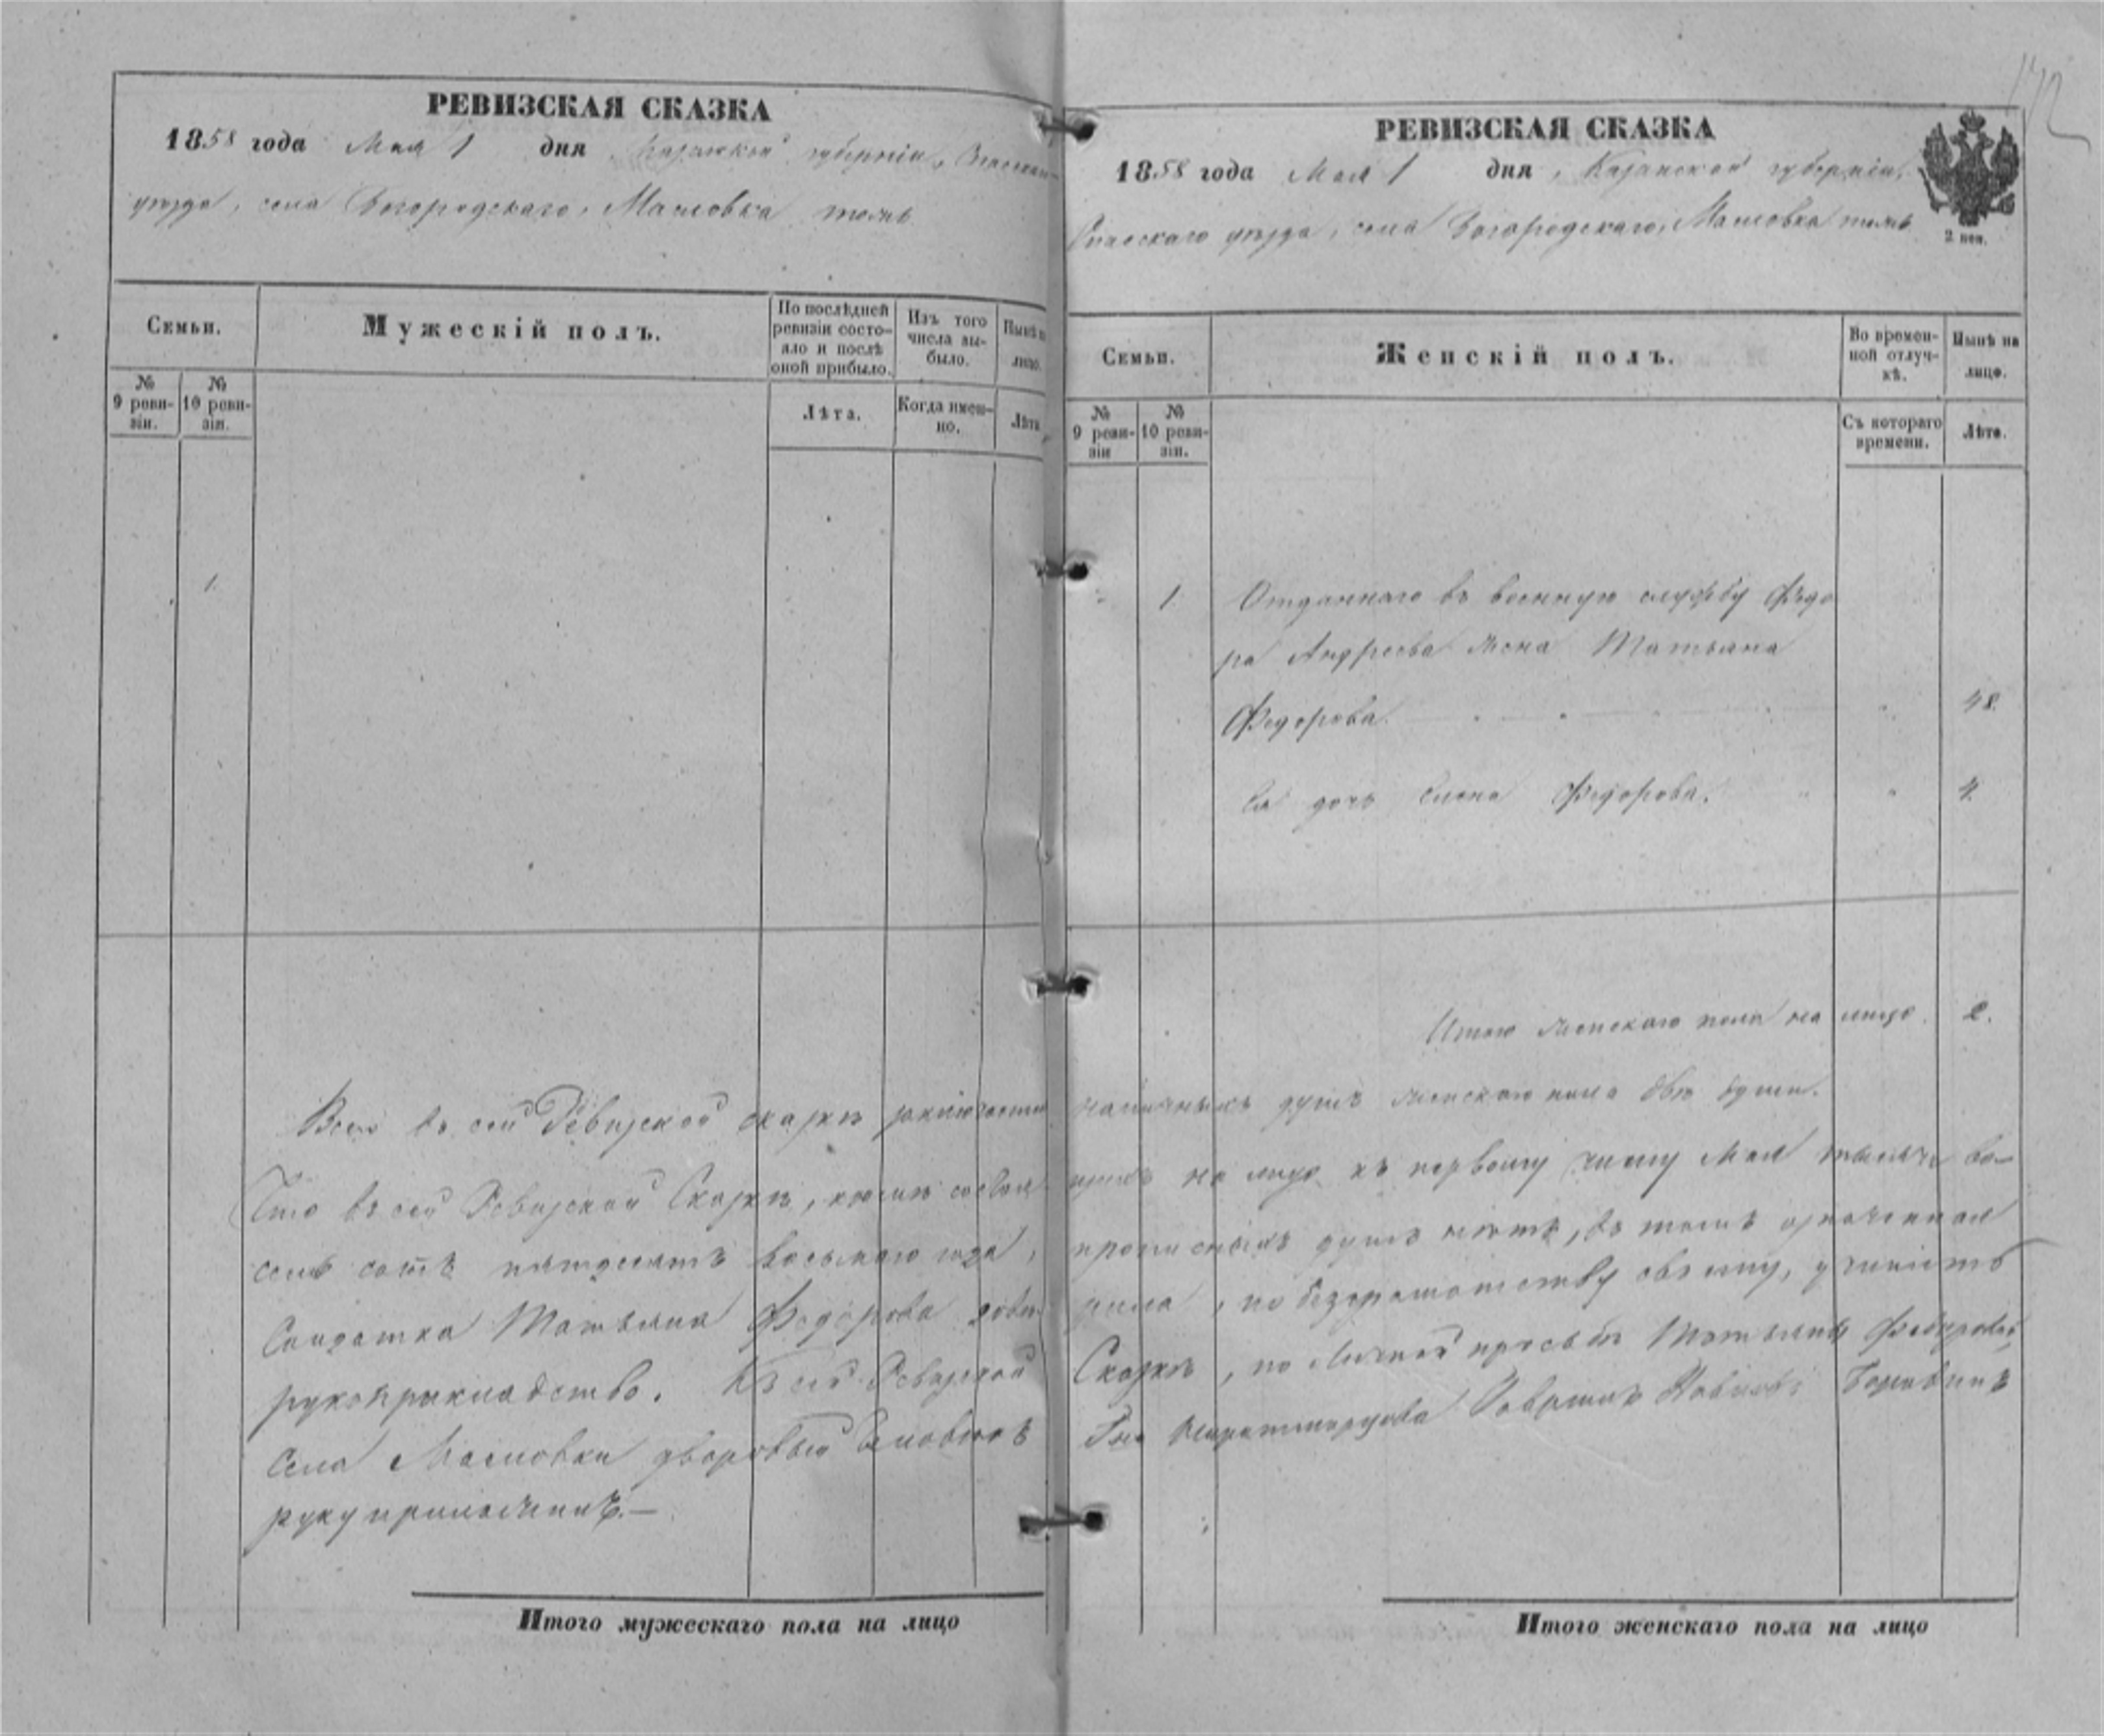 РЕВИЗСКАЯ СКАЗКА
1858 года Мая 1 дня Казанской губерніи, Спасскаго
уѣзда, села Богородскаго, Масловка тожъ
Семьи.
Мужескій полъ.
По послѣдней ревизіи состояло и послѣ оной прибыло.
Изъ того числа выбыло.
Нынѣ на лицо.
№ 9 ревизіи.
№ 10 ревизіи.
Лѣта.
Когда именно.
Лѣта
1.
Итого мужескаго пола на лицо
142
РЕВИЗСКАЯ СКАЗКА
1858 года Мая 1 дня, Казанской губерніи,
Спасскаго уѣзда, села Богородскаго, Масловка тожъ
2 коп.
Семьи.
Женскій полъ.
Во временной отлучкѣ.
Нынѣ на лицо.
№ 9 ревизіи
№ 10 ревизіи.
Съ котораго времени.
Лѣта.
1. Отданнаго въ военную службу Федо
ра Андреева жена Татьяна
Федорова. 48.
Ея дочь Елена Федорова. 4.
Итого женскаго пола на лицо. 2.
Всего въ сей Ревизской сказкѣ заключается наличныхъ душъ женскаго пола двѣ души.
Что въ сей Ревизской Сказкѣ, всѣ состоя щіе на лицо къ первому числу Мая тысяча во-
семь сотъ пятдесятъ восьмаго года, прописныхъ душъ нѣтъ, въ томъ означенная
Солдатка Татьяна Федорова довѣ рила, по безграмотству своему, учинить
рукоприкладство. Къ сей Ревизской Сказкѣ, по личной прозьбѣ Татьяны Федоровой,
села Масловки дворовый человѣкъ Гна Гаврилъ
руку приложилъ.—
Итого женскаго пола на лицо